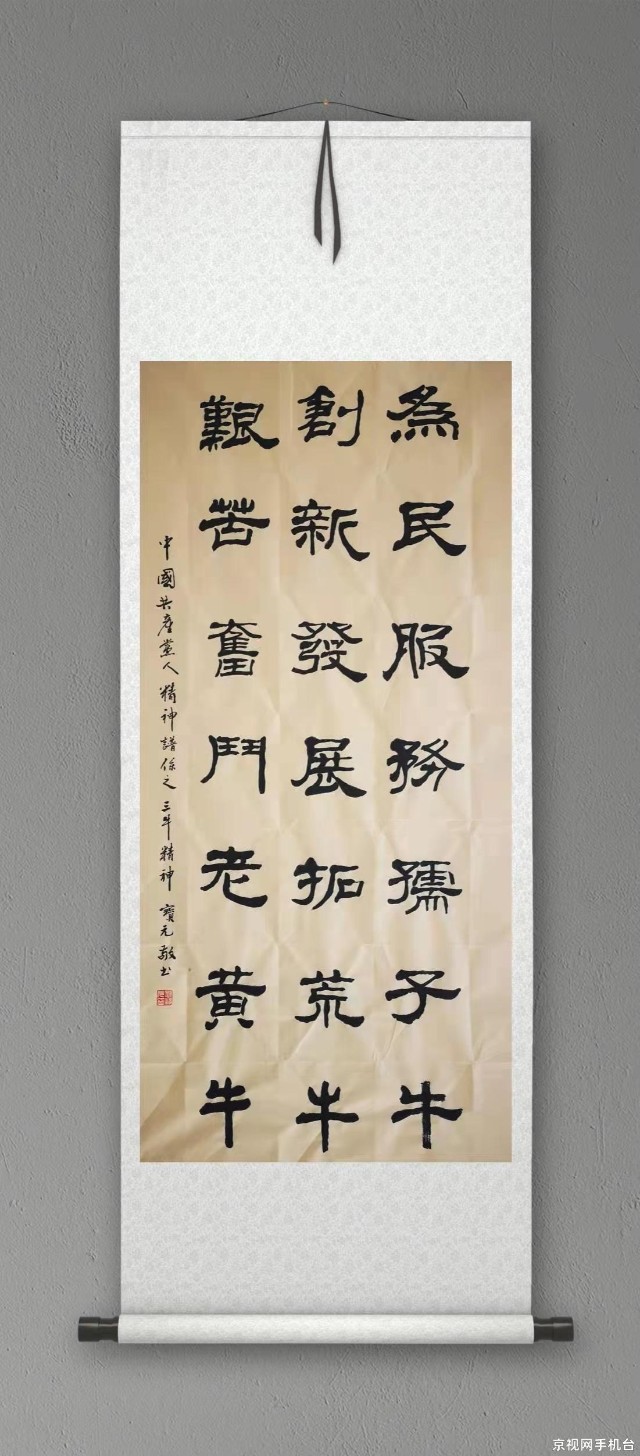 為民服務孺子牛
創新發展拓荒牛
艱苦奮鬥老黃牛
中國共產黨人精神譜係之三牛精神 寶元敬书
京视网手机台